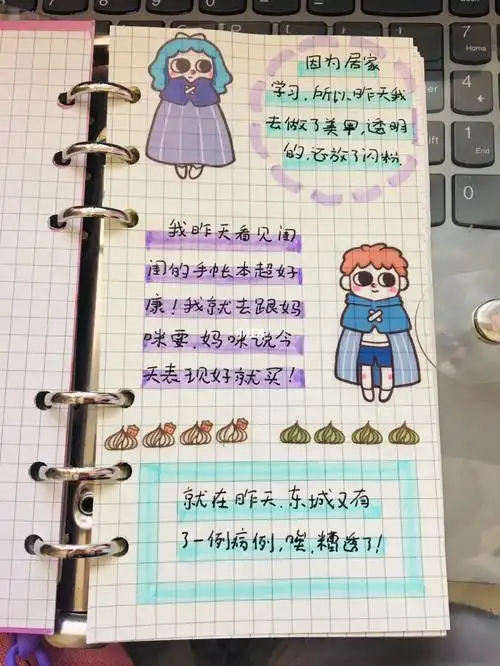 因为居家
学习，所以昨天我
去做了美甲，透明
的，还放了闪粉.
我昨天看见闺
闺的手帐本超好
康！我就去跟妈
咪要，妈咪说今
天表现好就买！
就在昨天，东城又有
了一例病例，唉，糟透了！
7
Home
4
1
0